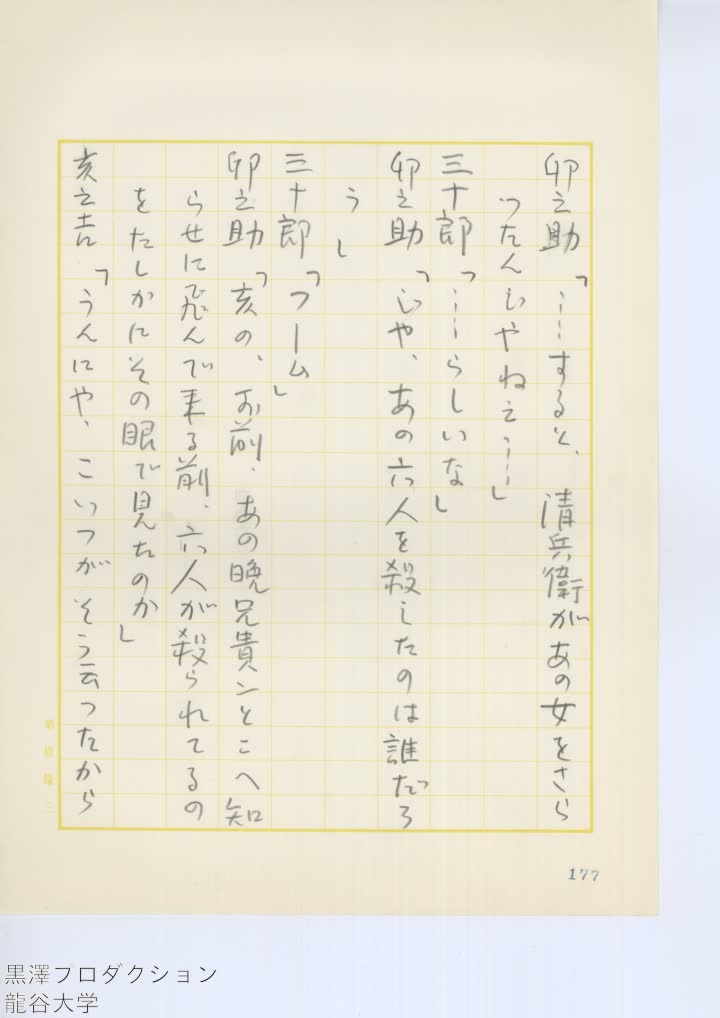 卯之助「……すると、清兵衛があの女をさら
つたんじやねえ……」
三十郎「……らしいな」
卯之助「じや、あの六人を殺したのは誰だろ
う」
三十郎「フーム」
卯之助「亥の、お前、あの晩兄貴ンとこへ知
らせに飛んで来る前、六人が殺られてるの
をたしかにその眼で見たのか」
亥之吉「うんにや、こいつがそう云つたから
177
黒澤プロダクション
龍谷大学